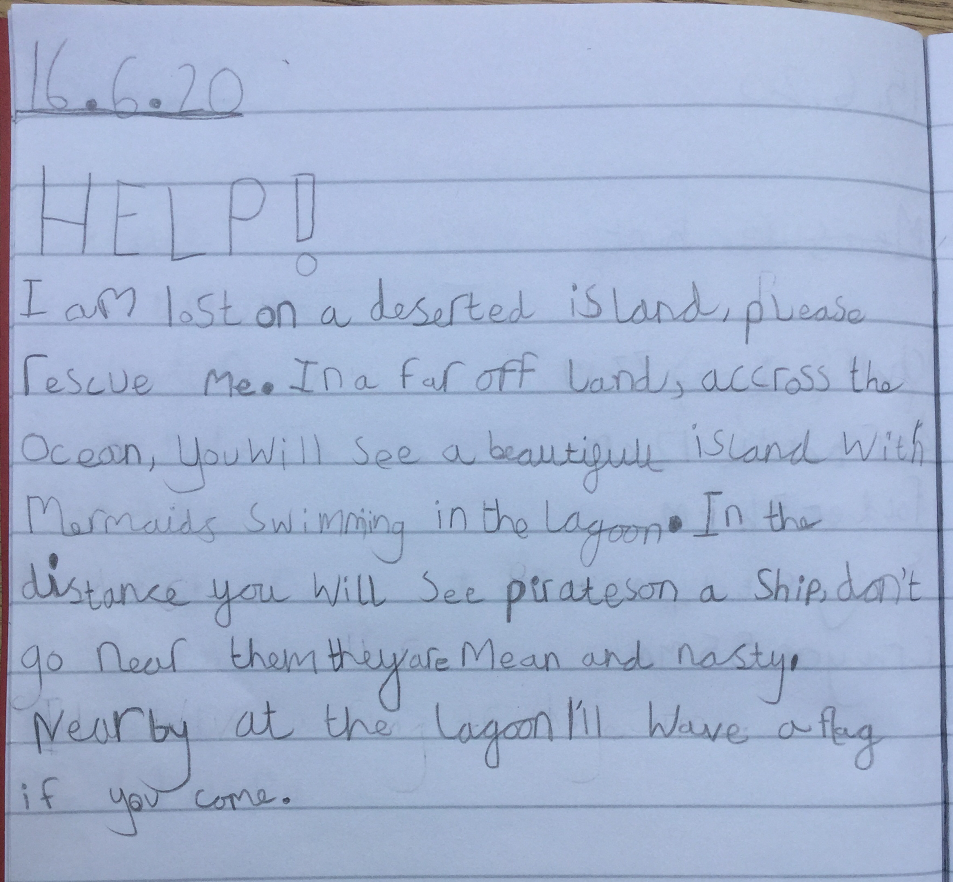 16.6.20
HELP!
I am lost on a deserted island, please
rescue me. In a far off land, accross the
Ocean, you will see a beautifull island with
Mermaids swimming in the lagoon. In the
distance you will see pirates on a ship, don't
go near them they are mean and nasty.
Nearby at the lagoon I'll wave a flag
if you come.